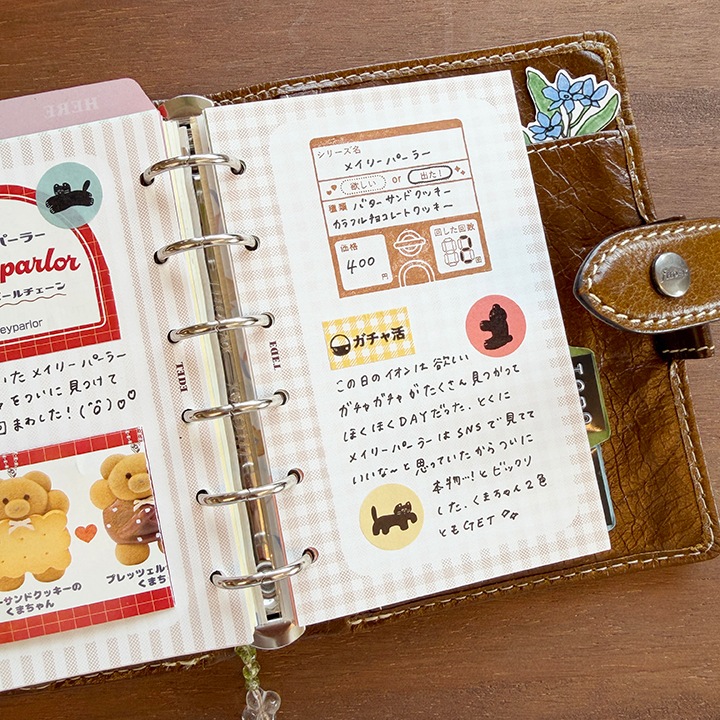 HERE
パーラー
eyparlor
ールチェーン
eyparlor
いた メイリーパーラー
をついに見つけて
回まわした！(^o^)♡♡
ーサンドクッキーの
くまちゃん
プレッツェル
くまち
EDET
EDET
シリーズ名
メイリーパーラー
欲しい or 出た！
種類 バターサンドクッキー
カラフルチョコレートクッキー
価格
400円
回した回数
2回
ガチャ活
この日のイオンは欲しい
ガチャガチャがたくさん見つかって
ほくほくDAYだった. とくに
メイリーパーラーはSNSで見てて
いいな〜と思っていたからついに
本物…！とビックリ
した. くまちゃん2色
ともGET
TODO